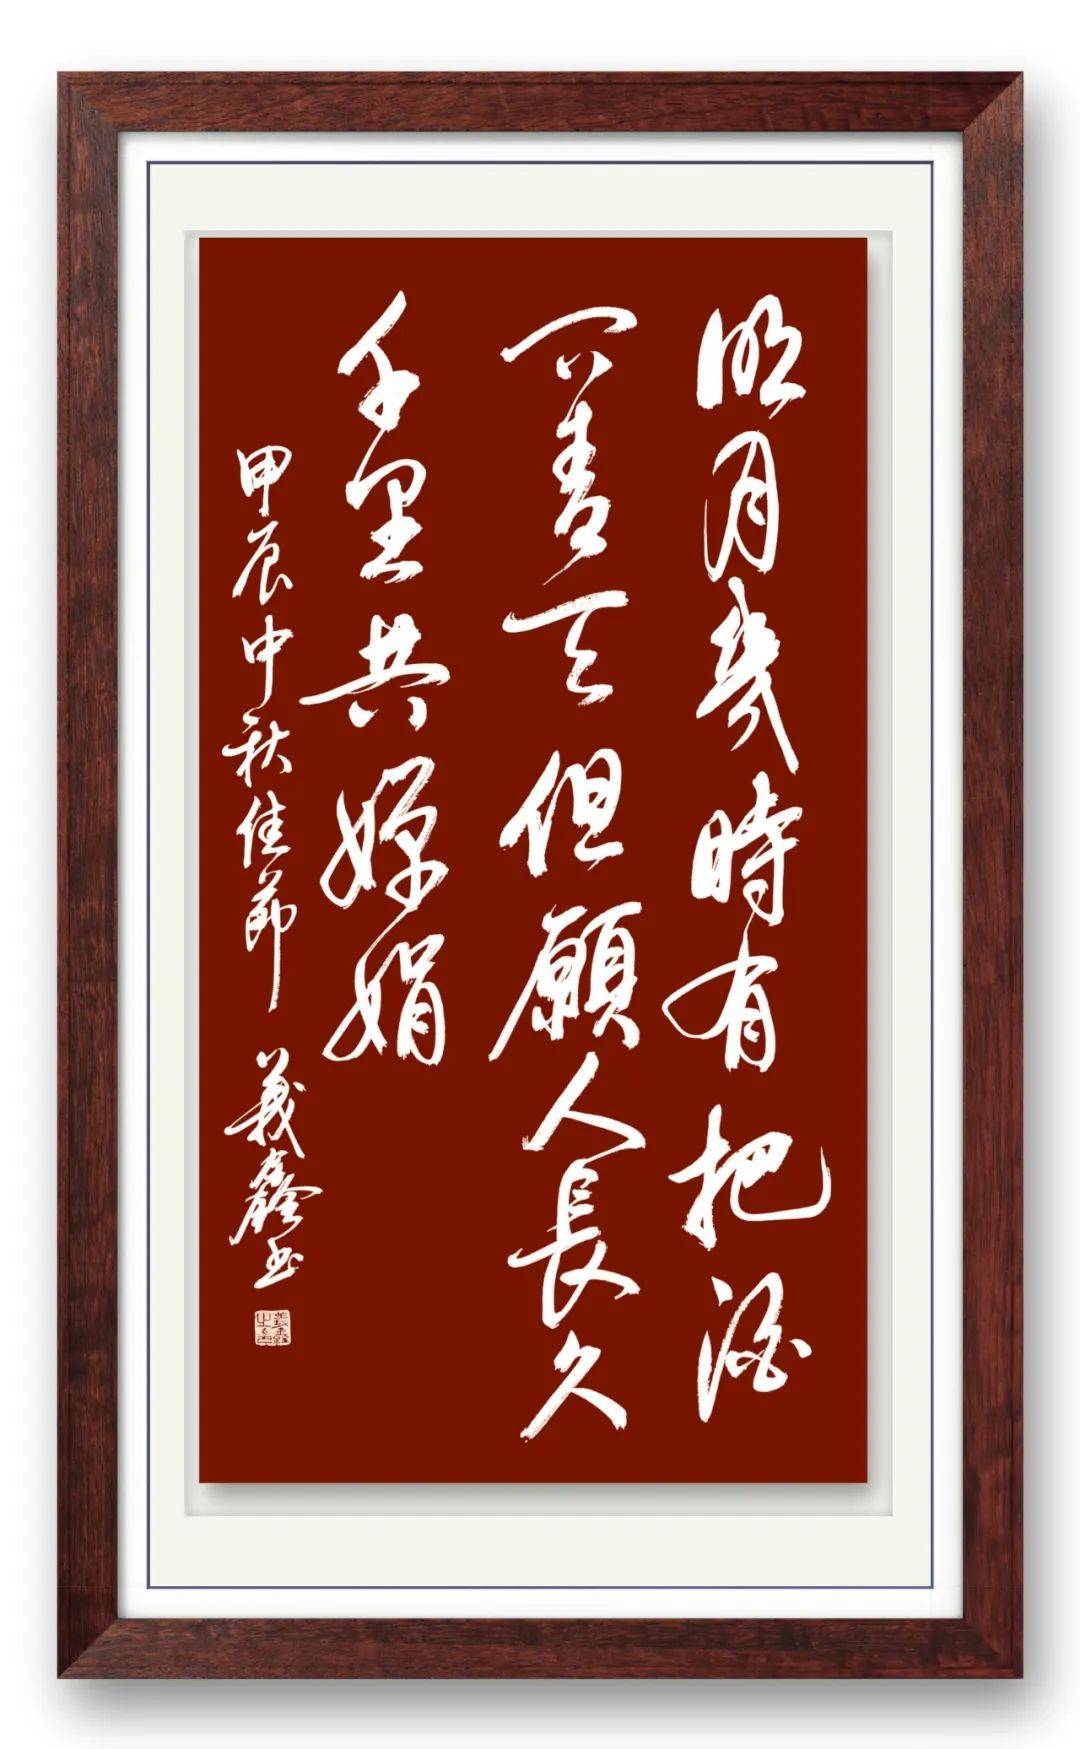 明月幾時有把酒
問青天但願人長久
千里共嬋娟
甲辰中秋佳節 義鑫书